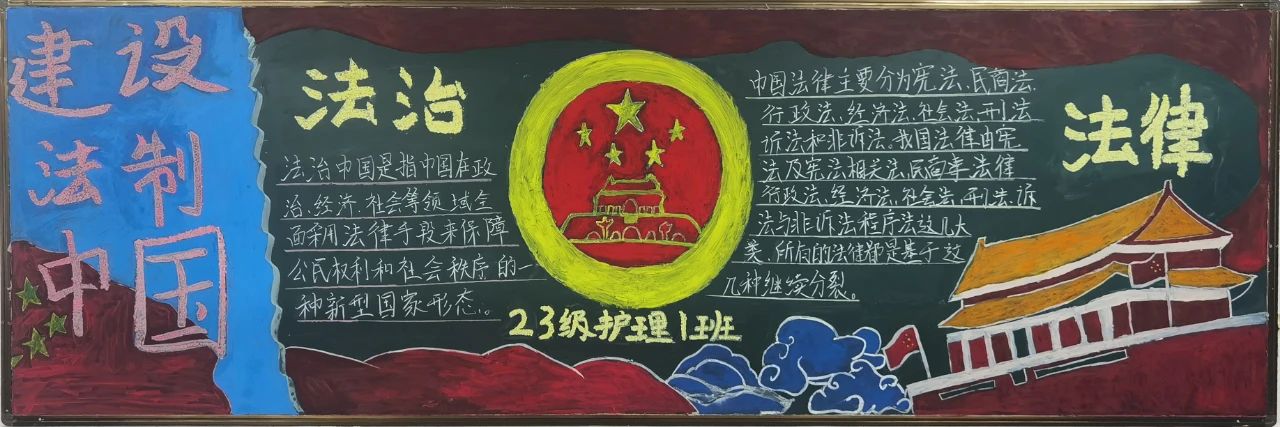 建设
法制
中国
法治
法治中国是指中国在政
治、经济、社会等领域全
面采用法律手段来保障
公民权利和社会秩序的一
种新型国家形态。
23级护理1班
中国法律主要分为宪法、民商法、
行政法、经济法、社会法、刑法
诉法和非诉法。我国法律由宪
法及宪法相关法、民商事法律
行政法、经济法、社会法、刑法、诉
法与非诉法程序法这几大
类、所有的法律都是基于这
几种继续分裂。
法律